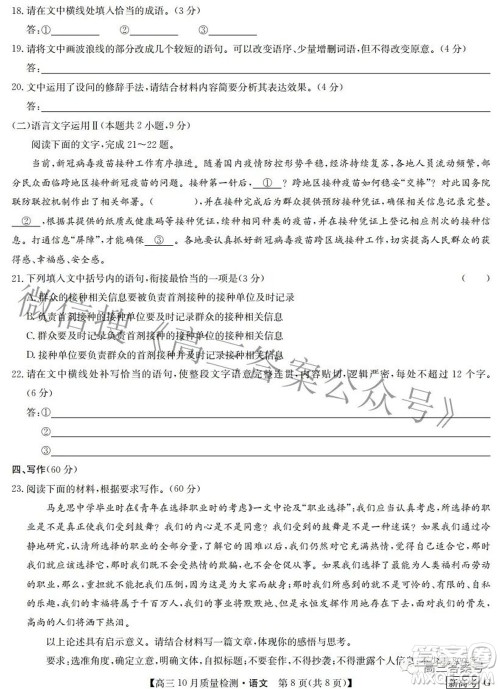 18. 请在文中横线处填入恰当的成语。(3 分)
答:① ② ③
19. 请将文中画波浪线的部分改成几个较短的语句。可以改变语序、少量增删词语,但不得改变原意。(4 分)
答:
20. 文中运用了设问的修辞手法,请结合材料内容简要分析其表达效果。(4 分)
答:
(二)语言文字运用Ⅱ(本题共 2 小题,9 分)
阅读下面的文字,完成 21～22 题。
当前,新冠病毒疫苗接种工作有序推进。随着国内疫情防控形势平稳,经济持续复苏,各地人员流动频繁,部
分民众面临跨地区接种新冠疫苗的问题。接种第一针后, ① ?跨地区接种疫苗如何稳妥“交棒”?对此国务院
联防联控机制作出了相关部署。( ),并在接种完成后为群众提供预防接种凭证,确保相关信息记录完整。
② ,根据群众提供的纸质或健康码等接种凭证,续种相同种类的疫苗,并在接种凭证上登记相应剂次的接种信
息。打通信息“屏障”,才能确保 ③ 。各地要认真抓好新冠病毒疫苗接种工作,切实提高人民群众的获
得感、幸福感、安全感。
21. 下列填入文中括号内的语句,衔接最恰当的一项是(3 分) ( )
A. 群众的接种相关信息要被负责首剂接种的接种单位及时记录
B. 负责首剂接种的接种单位要及时记录群众的接种相关信息
C. 群众的接种单位要负责首剂接种并及时记录接种相关信息
D. 接种单位要负责群众的首剂接种并及时记录接种相关信息
22. 请在文中横线处补写恰当的语句,使整段文字语意完整连贯,内容贴切,逻辑严密,每处不超过 12 个字。
(6 分)
答:①
②
③
四、写作(60 分)
23. 阅读下面的材料,根据要求写作。(60 分)
马克思中学毕业时在《青年在选择职业时的考虑》一文中论及“职业选择”:我们应当认真考虑,所选择的职业
是不是真正使我们受到鼓舞?我们的内心是不是同意?我们受到的鼓舞是不是一种迷误?如果我们通过冷
静地研究,认清所选择的职业的全部分量,了解它的困难以后,我们仍然对它充满热情,觉得自己适合它,那时我
们就应该选择它,那时我们既不会受热情的欺骗,也不会仓促从事。如果我们选择了最能为人类福利而劳动的
职业,那么,重担就不能把我们压倒,因为这是为大家而献身;那时我们所感到的就不是可怜的、有限的、自私
的乐趣,我们的幸福将属于千百万人,我们的事业将默默地、但是永恒发挥作用地存在下去,而面对我们的骨灰,
高尚的人们将洒下热泪。
以上论述具有启示意义。请结合材料写一篇文章,体现你的感悟与思考。
要求:选准角度,确定立意,明确文体,自拟标题;不要套作,不得抄袭;不得泄露个人信息
高三 10 月质量检测·语文 第 8 页(共 8 页)
新高考
微信搜《高三答案公众号》